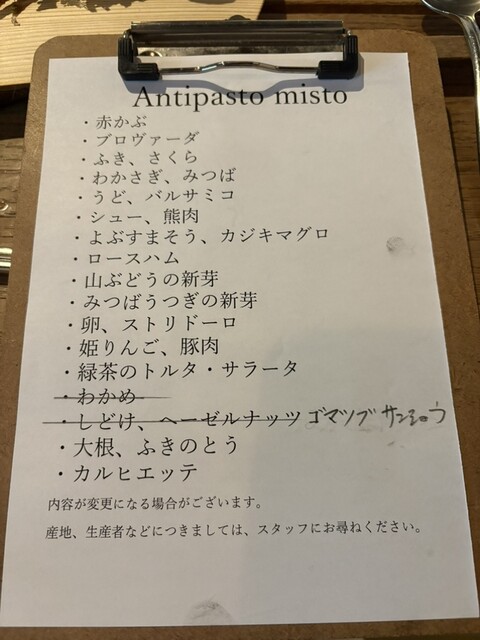 Antipasto misto
・赤かぶ
・ブロヴァーダ
・ふき、さくら
・わかさぎ、みつば
・うど、バルサミコ
・シュー、熊肉
・よぶすまそう、カジキマグロ
・ロースハム
・山ぶどうの新芽
・みつばうつぎの新芽
・卵、ストリドーロ
・姫りんご、豚肉
・緑茶のトルタ・サラータ
・わかめ
・しどけ、ヘーゼルナッツ ゴマツブ サンショウ
・大根、ふきのとう
・カルヒエッテ
内容が変更になる場合がございます。
産地、生産者などにつきましては、スタッフにお尋ねください。